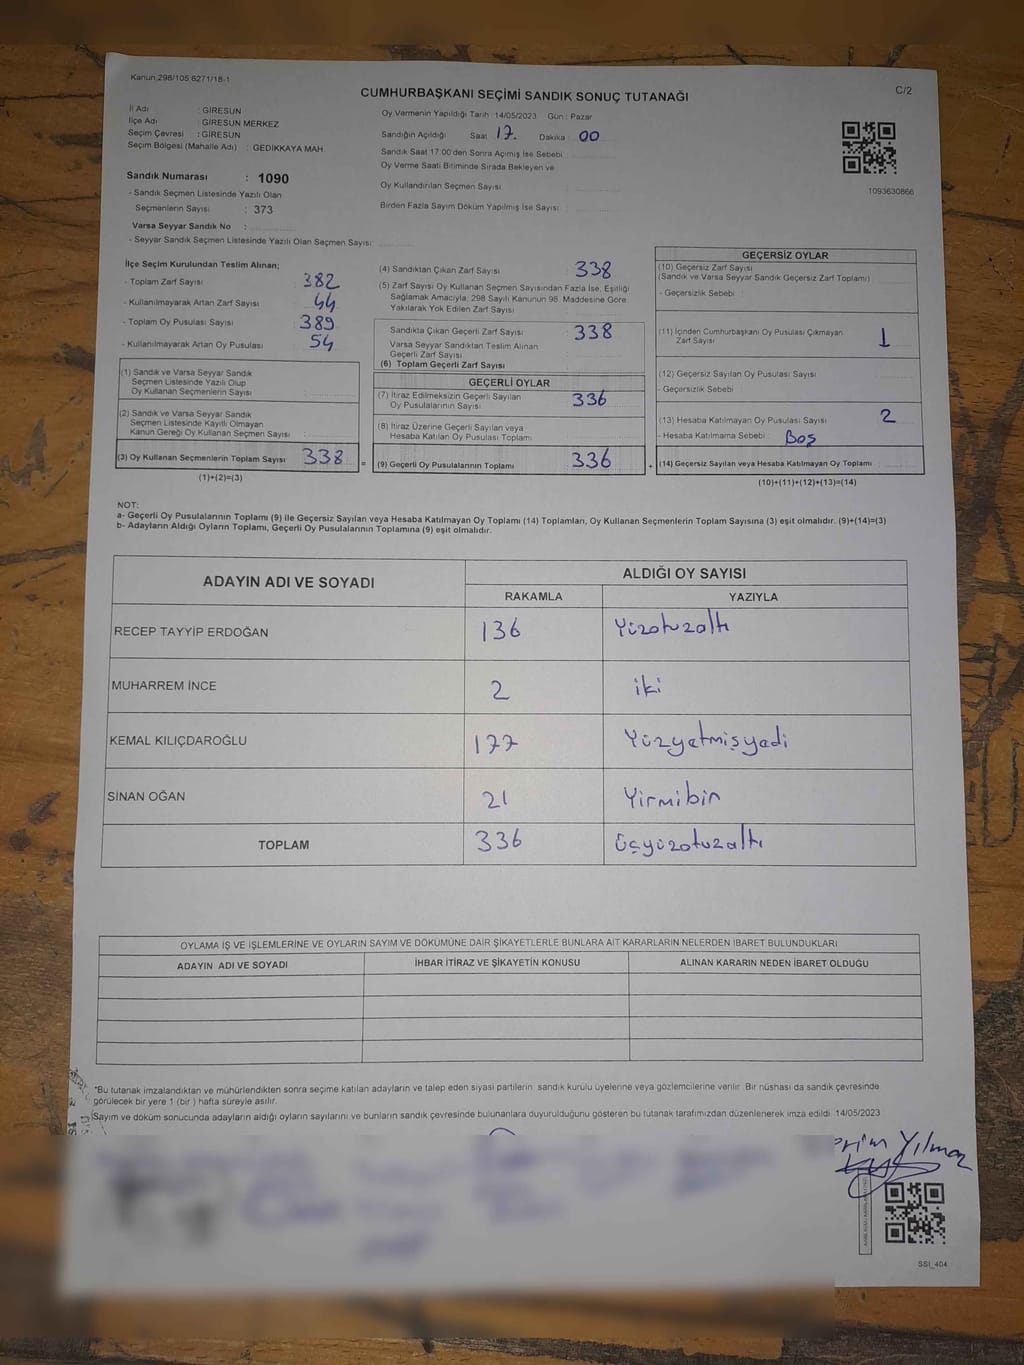 Kanun 298/105 6271/18-1
C/2
CUMHURBAŞKANI SEÇİMİ SANDIK SONUÇ TUTANAĞI
İl Adı : GİRESUN
İlçe Adı : GİRESUN MERKEZ
Seçim Çevresi : GİRESUN
Seçim Bölgesi (Mahalle Adı) : GEDİKKAYA MAH.
Sandık Numarası : 1090
- Sandık Seçmen Listesinde Yazılı Olan
Seçmenlerin Sayısı : 373
Varsa Seyyar Sandık No :
- Seyyar Sandık Seçmen Listesinde Yazılı Olan Seçmen Sayısı:
Oy Vermenin Yapıldığı Tarih : 14/05/2023 Gün : Pazar
Sandığın Açıldığı Saat 17. Dakika : 00
Sandık Saat 17.00'den Sonra Açımış İse Sebebi :
Oy Verme Saati Bitiminde Sırada Bekleyen ve
Oy Kullandırılan Seçmen Sayısı
Birden Fazla Sayım Döküm Yapılmış İse Sayısı :
1093630866
İlçe Seçim Kurulundan Teslim Alınan;
- Toplam Zarf Sayısı 382
- Kullanılmayarak Artan Zarf Sayısı 44
- Toplam Oy Pusulası Sayısı 389
- Kullanılmayarak Artan Oy Pusulası 54
(1) Sandık ve Varsa Seyyar Sandık
Seçmen Listesinde Yazılı Olup
Oy Kullanan Seçmenlerin Sayısı
(2) Sandık ve Varsa Seyyar Sandık
Seçmen Listesinde Kayıtlı Olmayan
Kanun Gereği Oy Kullanan Seçmen Sayısı
(3) Oy Kullanan Seçmenlerin Toplam Sayısı 338 =
(1)+(2)=(3)
(4) Sandıktan Çıkan Zarf Sayısı 338
(5) Zarf Sayısı Oy Kullanan Seçmen Sayısından Fazla İse, Eşitliği
Sağlamak Amacıyla, 298 Sayılı Kanunun 98. Maddesine Göre
Yakılarak Yok Edilen Zarf Sayısı
Sandıkta Çıkan Geçerli Zarf Sayısı 338
Varsa Seyyar Sandıktan Teslim Alınan
Geçerli Zarf Sayısı
(6) Toplam Geçerli Zarf Sayısı
GEÇERLİ OYLAR
(7) İtiraz Edilmeksizin Geçerli Sayılan
Oy Pusulalarının Sayısı 336
(8) İtiraz Üzerine Geçerli Sayılan veya
Hesaba Katılan Oy Pusulası Toplamı
(9) Geçerli Oy Pusulalarının Toplamı 336 +
GEÇERSİZ OYLAR
(10) Geçersiz Zarf Sayısı
(Sandık ve Varsa Seyyar Sandık Geçersiz Zarf Toplamı)
- Geçersizlik Sebebi
(11) İçinden Cumhurbaşkanı Oy Pusulası Çıkmayan
Zarf Sayısı 1
(12) Geçersiz Sayılan Oy Pusulası Sayısı
- Geçersizlik Sebebi :
(13) Hesaba Katılmayan Oy Pusulası Sayısı 2
- Hesaba Katılmama Sebebi : Boş
(14) Geçersiz Sayılan veya Hesaba Katılmayan Oy Toplamı
(10)+(11)+(12)+(13)=(14)
NOT:
a- Geçerli Oy Pusulalarının Toplamı (9) ile Geçersiz Sayılan veya Hesaba Katılmayan Oy Toplamı (14) Toplamları, Oy Kullanan Seçmenlerin Toplam Sayısına (3) eşit olmalıdır. (9)+(14)=(3)
b- Adayların Aldığı Oyların Toplamı, Geçerli Oy Pusulalarının Toplamına (9) eşit olmalıdır.
ADAYIN ADI VE SOYADI ALDIĞI OY SAYISI
RAKAMLA YAZIYLA
RECEP TAYYİP ERDOĞAN 136 Yüzotuzaltı
MUHARREM İNCE 2 iki
KEMAL KILIÇDAROĞLU 177 Yüzyetmişyedi
SİNAN OĞAN 21 Yirmibir
TOPLAM 336 üçyüzotuzaltı
OYLAMA İŞ VE İŞLEMLERİNE VE OYLARIN SAYIM VE DÖKÜMÜNE DAİR ŞİKAYETLERLE BUNLARA AİT KARARLARIN NELERDEN İBARET BULUNDUKLARI
ADAYIN ADI VE SOYADI İHBAR İTİRAZ VE ŞİKAYETİN KONUSU ALINAN KARARIN NEDEN İBARET OLDUĞU
*Bu tutanak imzalandıktan ve mühürlendikten sonra seçime katılan adayların ve talep eden siyasi partilerin sandık kurulu üyelerine veya gözlemcilerine verilir. Bir nüshası da sandık çevresinde
görülecek bir yere 1 (bir) hafta süreyle asılır.
Sayım ve döküm sonucunda adayların aldığı oyların sayılarını ve bunların sandık çevresinde bulunanlara duyurulduğunu gösteren bu tutanak tarafımızdan düzenlenerek imza edildi. 14/05/2023
Yılmaz
SSI_404